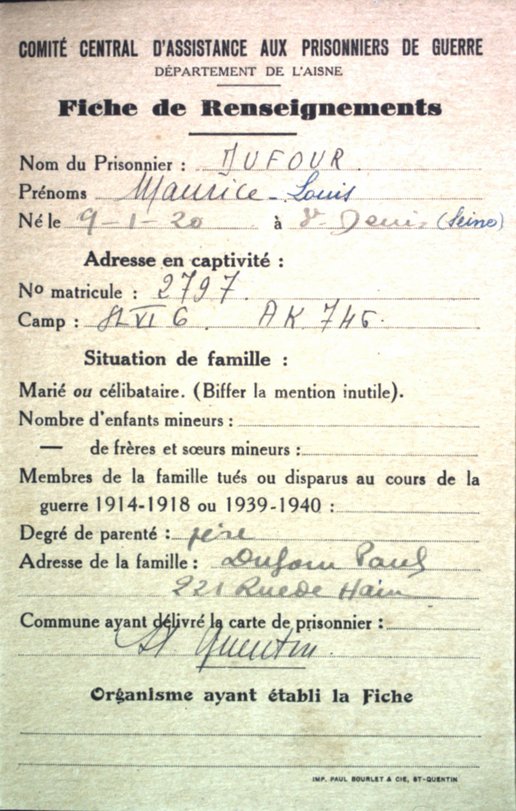 COMITÉ CENTRAL D'ASSISTANCE AUX PRISONNIERS DE GUERRE
DÉPARTEMENT DE L'AISNE
Fiche de Renseignements
Nom du Prisonnier : DUFOUR
Prénoms Maurice - Louis
Né le 9-1-20 à St Denis (Seine)
Adresse en captivité :
No matricule : 2797
Camp : St VI G AK 746
Situation de famille :
Marié ou célibataire. (Biffer la mention inutile).
Nombre d'enfants mineurs :
— de frères et sœurs mineurs :
Membres de la famille tués ou disparus au cours de la
guerre 1914-1918 ou 1939-1940 :
Degré de parenté : père
Adresse de la famille : Dufour Paul
221 Rue de Ham
Commune ayant délivré la carte de prisonnier :
St Quentin
Organisme ayant établi la Fiche
IMP. PAUL BOURLET & CIE, ST-QUENTIN